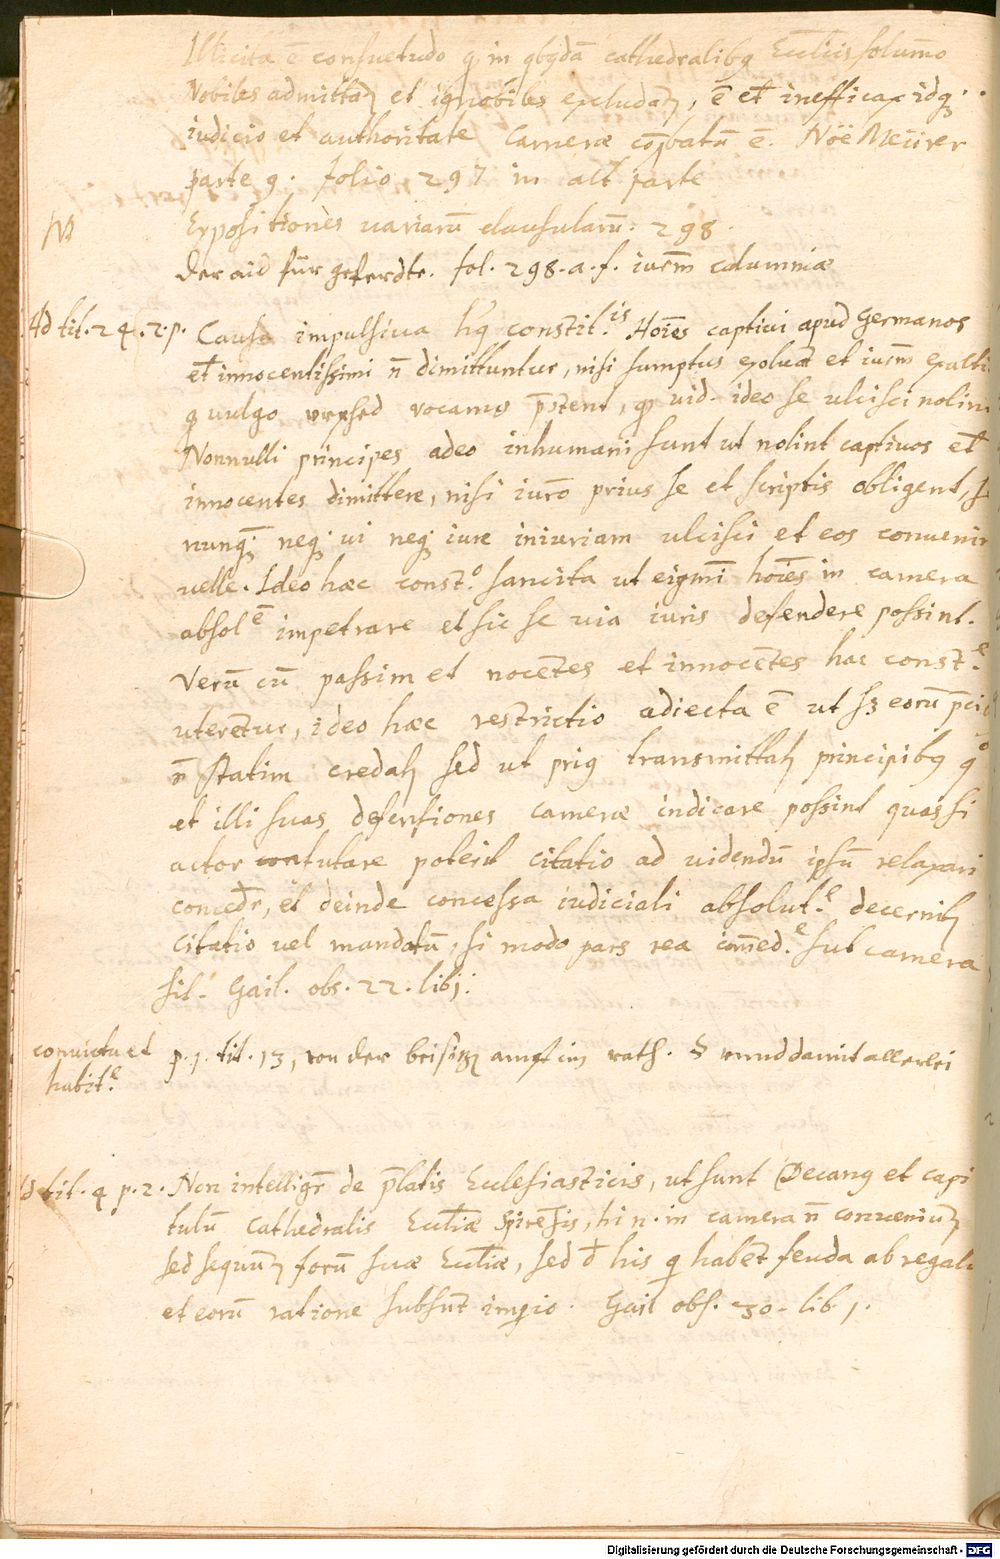 Illicita ē consuetudo q̄ in qbꝰdā cathedralibꝫ Eccliis solum̄o
Nobiles admittāt et ignobiles excludāt, ē et̄ inefficax idqꝫ
iudicio et authoritate Cameræ cōꝑbatū ē. Nöe Meürer
parte 9. folio 297 in alt parte
NB
Expositiones uariarū clausularū: 298.
Der aid für geferdte. fol. 298. a. f. iurm̄ calumniæ
Ad tit. 24. 2. p. Causa impulsiua hꝰ constit.is Hōies captiui apud Germanos
et̄ innocentissimi n̄ dimittuntur, nisi sumptus exoluāt et iurm̄
q̄ uulgo vrphed vocamꝰ p̄stent, q uid. ideo se ulcisci nolint
Nonnulli principes adeo inhumani sunt ut nolint captiuos et̄
innocentes dimittere, nisi iurō prius se et scriptis obligent,
nunqꝫ neqꝫ ui neqꝫ iure iniuriam ulcisci et eos conuenire
uelle. Ideo hæc const.o sancita ut eiꝰm̄i hōies in camera
absol.ē impetrare et sic se uia iuris defendere possint.
Verū cū passim et nocētes et innocētes hac const.e
uterētur, ideo hæc restrictio adiecta ē ut sꝫ eorū
n̄ statim credat sed ut priꝰ transmittāt principibꝫ qo
et illi suas defensiones cameræ indicare possint quas si
actor confutare poterit citatio ad uidendū ipsū relaxari
concedr̄, et deinde concessa iudiciali absolut.e decernit
citatio uel mandatū, si modo pars rea im̄ed.e sub camera
sit. Gail. obs. 22. lib j.
conuictu et habit.e
p. 1. tit. 13, von der beisitzer ampt im rath. § vnnd damit allerlei
Ad tit. 4 p. 2. Non intelligr̄ de p̄latis Ecclesiasticis, ut sunt Decanꝰ et capi
tulū Cathedralis Eccliæ Spirēsis, hi n. in camera n̄ conueniūt
sed sequūt forū suæ Eccliæ, sed d̄ his q habēt feuda ab regali
et eorū ratione subsūt imꝑio. Gail obs. 30. lib. 1.
Digitalisierung gefördert durch die Deutsche Forschungsgemeinschaft - DFG